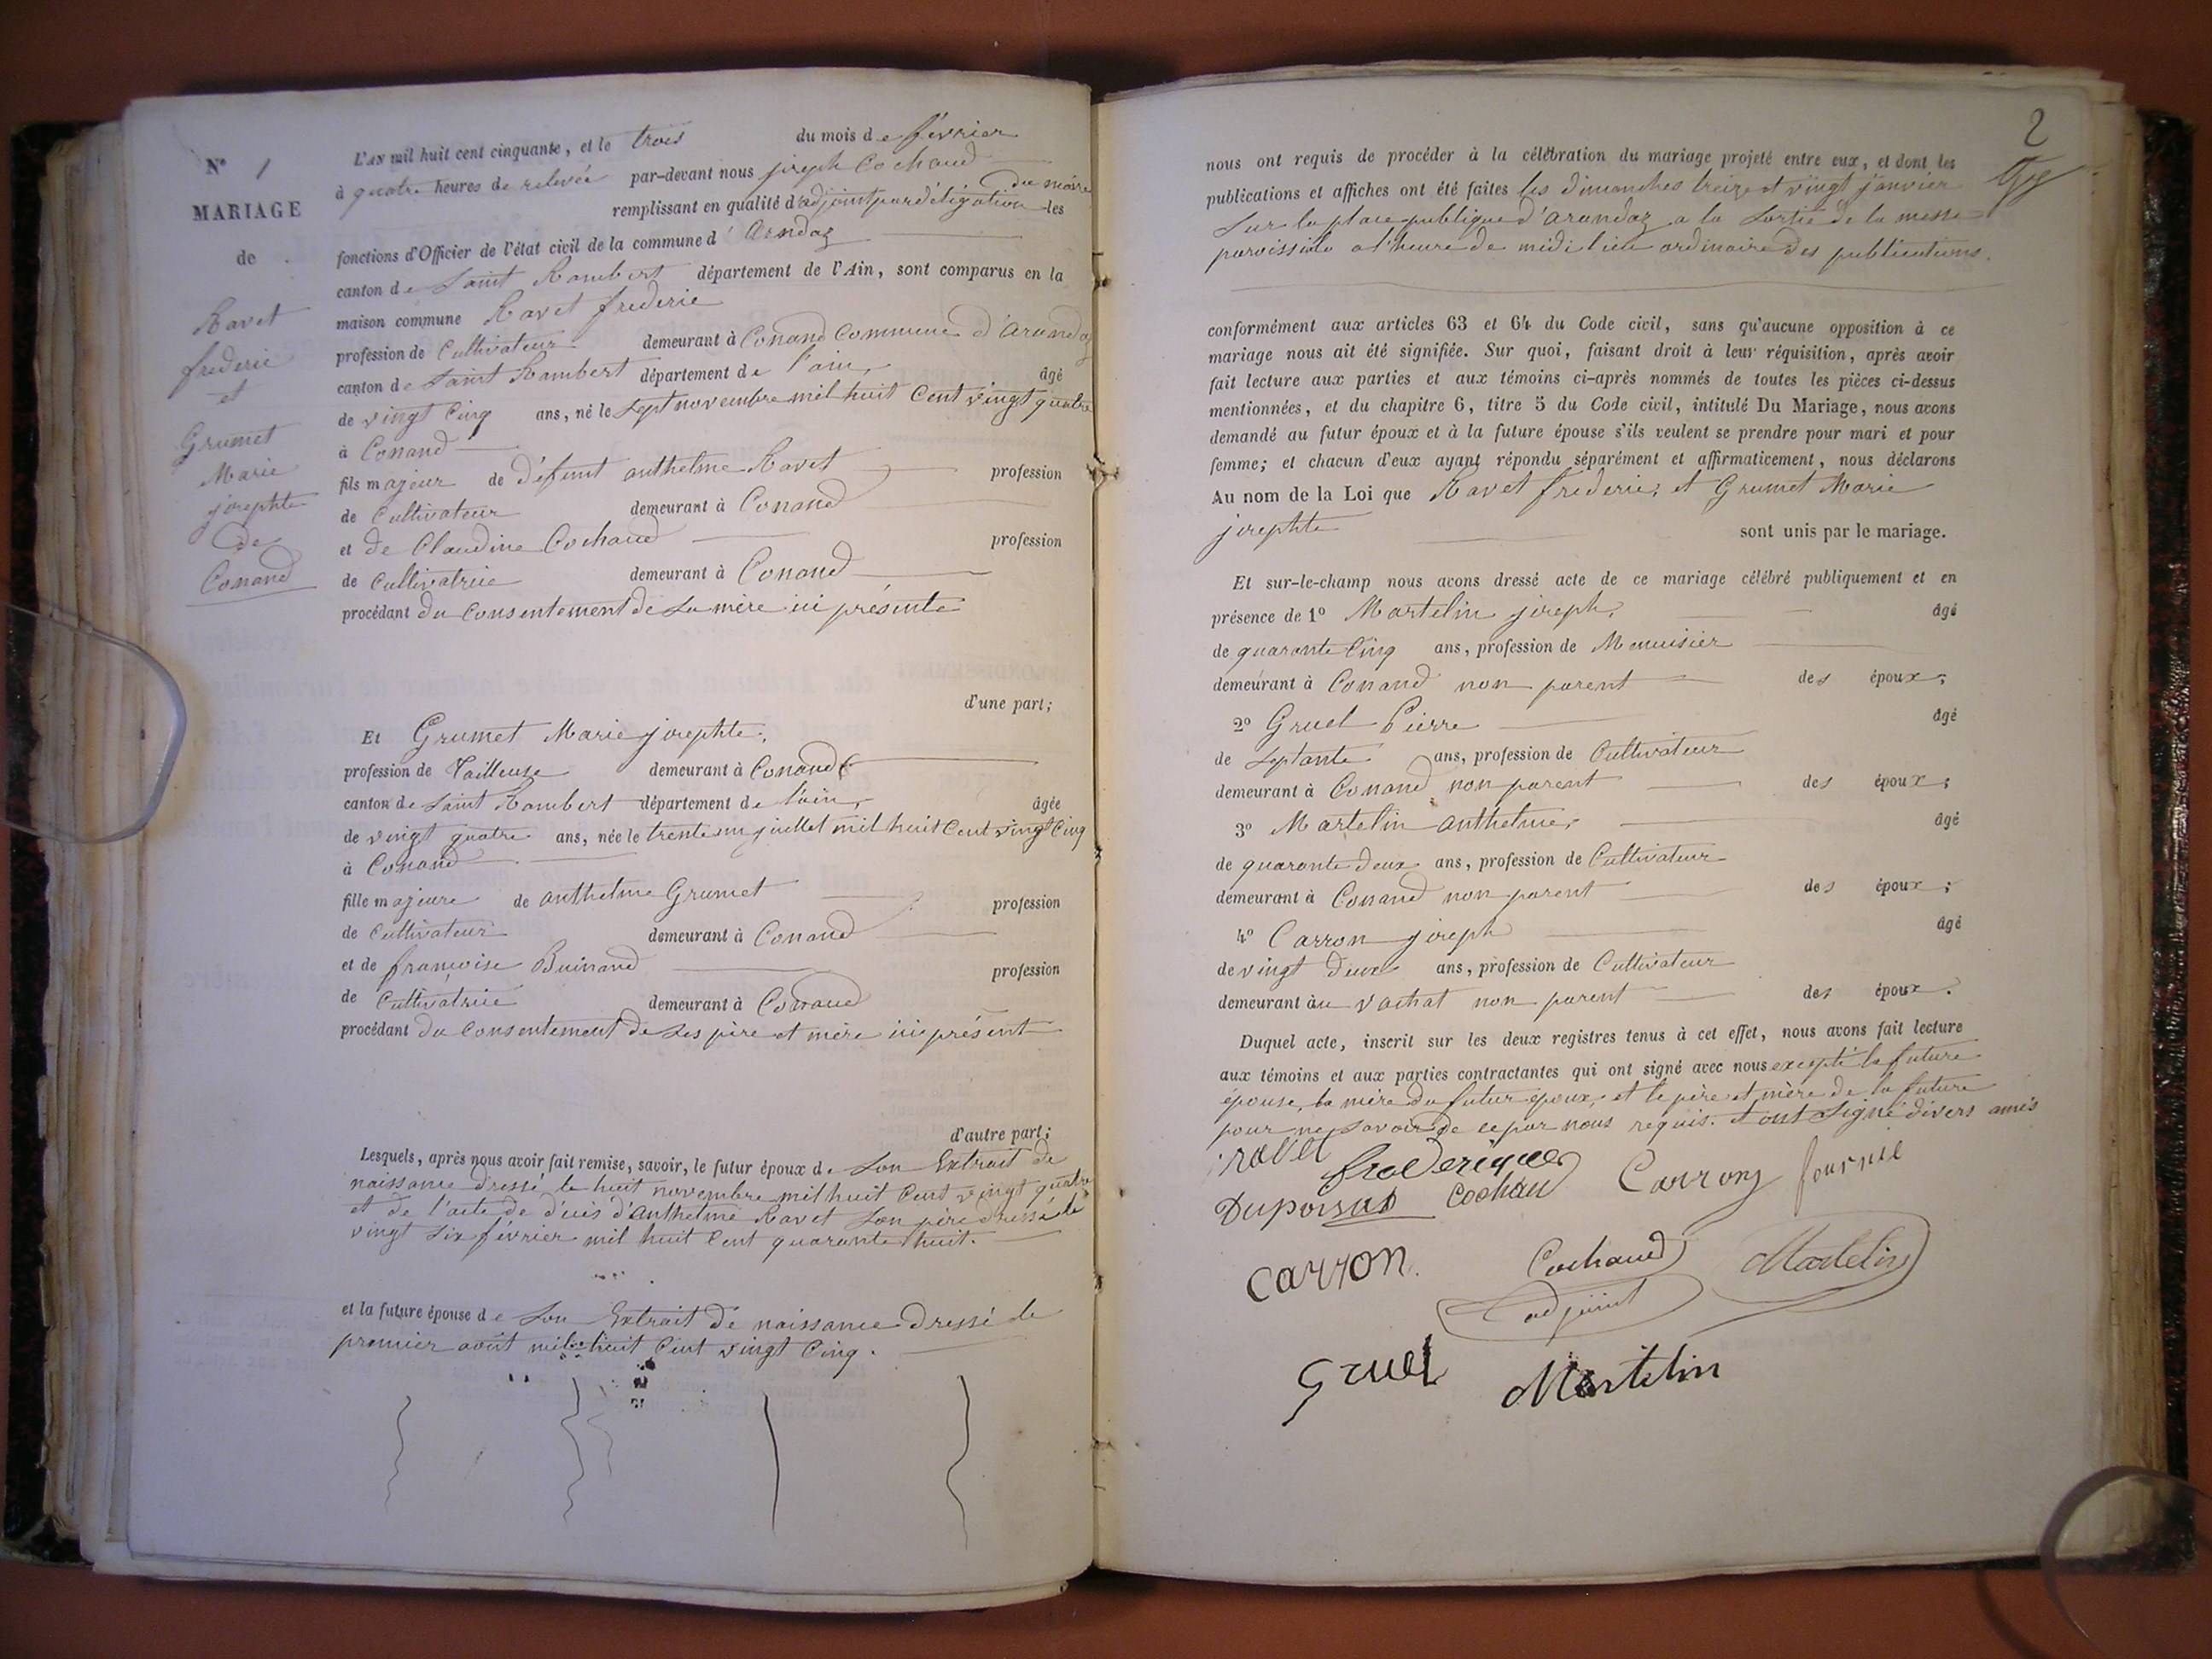 N° 1
MARIAGE
de
Ravet
frederic
et
Grumet
Marie
josephte
de
Conand
L'AN mil huit cent cinquante, et le trois du mois de février
à quatre heures de relevée par-devant nous joseph Cochaud
remplissant en qualité d'adjoint par déligation du maire les
fonctions d'Officier de l'état civil de la commune d' Arndaz
canton de Saint Rambert département de l'Ain, sont comparus en la
maison commune Ravet frederic
profession de Cultivateur demeurant à Conand commune d'Arandaz
canton de Saint Rambert département de l'ain, âgé
de vingt Cinq ans, né le sept novembre mil huit Cent vingt quatre
à Conand
fils majeur de défunt anthelme Ravet profession
de Cultivateur demeurant à Conand
et de Claudine Cochaud profession
de Cultivatrice demeurant à Conand
procédant du Consentement de sa mère ici présente
d'une part;
Et Grumet Marie josephte,
profession de Tailleuse demeurant à Conand
canton de Saint Rambert département de l'ain, âgée
de vingt quatre ans, née le trente un juillet mil huit Cent vingt Cinq
à Conand
fille majeure de anthelme Grumet profession
de Cultivateur demeurant à Conand
et de françoise Buinand profession
de Cultivatrice demeurant à Conand
procédant du Consentement de ses père et mère ici présent
d'autre part;
Lesquels, après nous avoir fait remise, savoir, le futur époux de son Extrait de
naissance dressé le huit novembre mil huit Cent vingt quatre
et de l'acte de décis d'anthelme Ravet son père dressé le
vingt six février mil huit Cent quarante huit.
et la future épouse de son Extrait de naissance dressé le
premier août mil huit Cent vingt Cinq.
2
nous ont requis de procéder à la célébration du mariage projeté entre eux, et dont les
publications et affiches ont été faites les dimanches treize et vingt janvier
sur la place publique d'arandaz a la sortie de la messe
paroissiale a l'heure de midi lieu ordinaire des publications.
conformément aux articles 63 et 64 du Code civil, sans qu'aucune opposition à ce
mariage nous ait été signifiée. Sur quoi, faisant droit à leur réquisition, après avoir
fait lecture aux parties et aux témoins ci-après nommés de toutes les pièces ci-dessus
mentionnées, et du chapitre 6, titre 5 du Code civil, intitulé Du Mariage, nous avons
demandé au futur époux et à la future épouse s'ils veulent se prendre pour mari et pour
femme; et chacun d'eux ayant répondu séparément et affirmativement, nous déclarons
Au nom de la Loi que Ravet frederic, et Grumet Marie
josephte sont unis par le mariage.
Et sur-le-champ nous avons dressé acte de ce mariage célébré publiquement et en
présence de 1° Martelin joseph, âgé
de quarante Cinq ans, profession de Menuisier
demeurant à Conand non parent des époux;
2° Gruel Pierre âgé
de septante ans, profession de Cultivateur
demeurant à Conand non parent des époux;
3° Martelin anthelme, âgé
de quarante deux ans, profession de Cultivateur
demeurant à Conand non parent des époux;
4° Carron joseph âgé
de vingt deux ans, profession de Cultivateur
demeurant àu vachat non parent des époux.
Duquel acte, inscrit sur les deux registres tenus à cet effet, nous avons fait lecture
aux témoins et aux parties contractantes qui ont signé avec nous excepté la future
épouse, la mère du futur époux, et le père et mère de la future
pour ne savoir de ce par nous requis. et ont signé divers amis
ravet frederique Carron
Cochau
Carron. Cochaud adjoint Martelin
Gruel Martelin